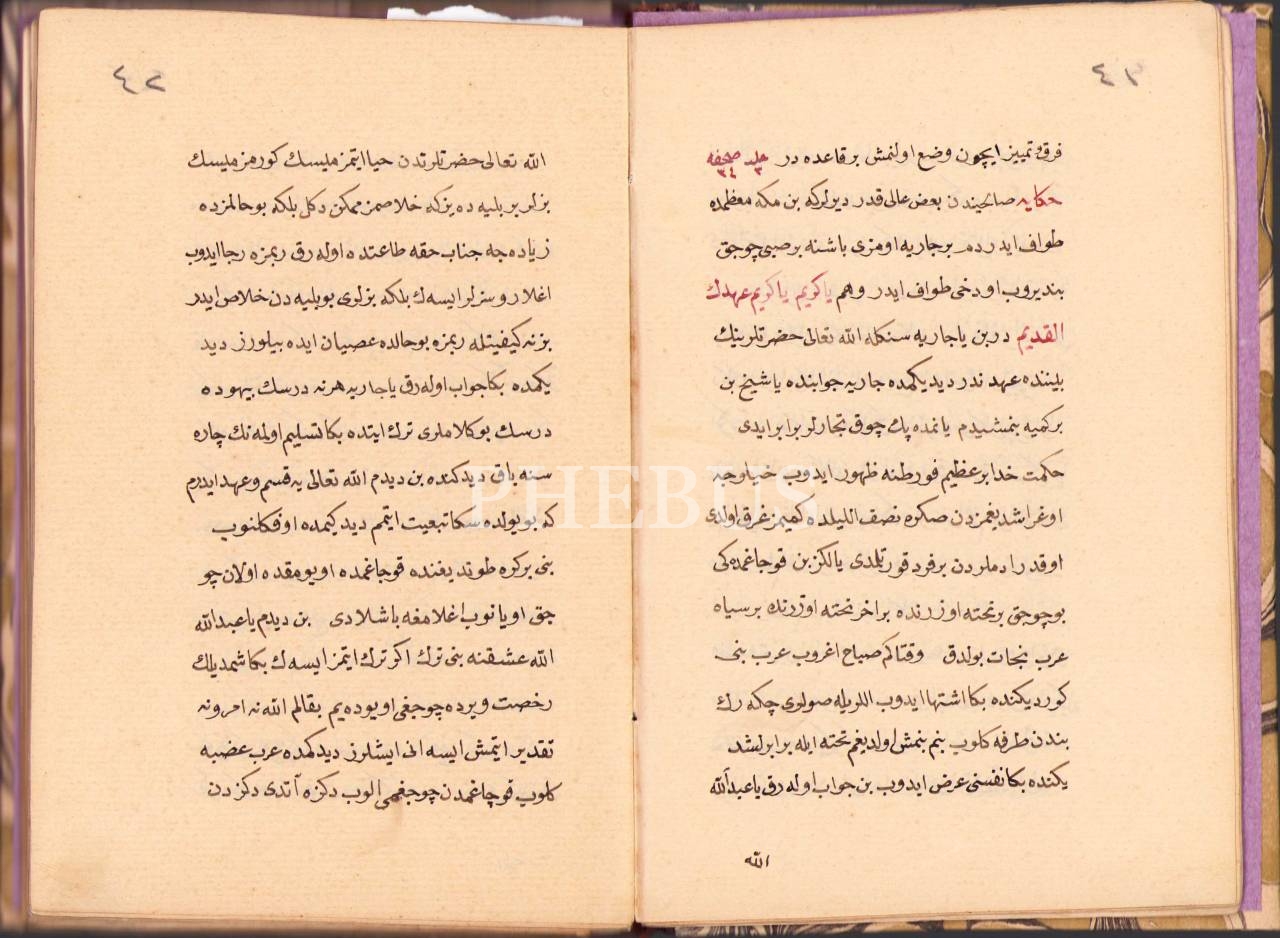 ٤١
فرق وتمييز ايچون وضع اولنمش بر قاعده در جلد ٣ صحيفه ٣٤
حكايه صالحيندن بعض عالى قدر ديرلر كه بن مكه معظمه ده
طواف ايدردم بر جاريه اومزى باشنه بر صبى چوجق
بنديروب او دخى طواف ايدر وهم ياكريم ياكريم عهدك
القديم در بن ياجاريه سنكله الله تعالى حضرتلرينك
بيننده عهد ندر ديديكمده جاريه جوابنده ياشيخ بن
بر كميه بنمشيدم يانمده پك چوق تجارلر برابر ايدى
حكمت خدا بر عظيم فورطنه ظهور ايدوب
اوغراشديغمزدن صكره نصف الليلده كميمز غرق اولدى
اوقدر ادملردن بر فرد قورتلدى يالكز بن قوجاغمده كى
بو چوجق بر تخته اوزرنده بر اخر تخته اوزرنده بر سياه
عرب نجات بولدق وقتاكم صباح اغروب عرب بنى
كورديكنده بكا اشتها ايدوب اللريله صولرى چكه رك
بندن طرفه كلوب بنم بنمش اولديغم تخته ايله برابرلشد
يكنده بكا نفسنى عرض ايدوب بن جواب اوله رق ياعبدالله
الله
٤٢
الله تعالى حضرتلرندن حيا ايتمزميسك كورمزميسك
بزلر بر بليه ده يز كه خلاصمز ممكن دكل بلكه بو حالمزده
زياده جه جناب حقه طاعتده اوله رق ربمزه رجا ايدوب
اغلار وسزلر ايسه ك بلكه بزلرى بو بليه دن خلاص ايدر
بز نه كيفيتله ربمزه بو حالده عصيان ايده بيلورز ديد
يكمده بكا جواب اوله رق ياجاريه هرنه درسك بيهوده
درسك بو كلاملرى ترك ايتده بكا تسليم اولمه نك چاره
سنه باق ديدكنده بن ديدم الله تعالى يه قسم وعهد ايدرم
كه بو يولده سكا تبعيت ايتمم ديديكمده اوفكلنوب
بنى بر كره طوتديغنده قوجاغمده اويومقده اولان چو
جق اويانوب اغلامغه باشلادى بن ديدم ياعبدالله
الله عشقنه بنى ترك اكر ترك ايتمز ايسه ك بكا شمديلك
رخصت ويرده چوجغى اويوده يم بقالم الله نه امر ونه
تقدير ايتمش ايسه انى ايشلرز ديدكمده عرب غضبه
كلوب قوجاغمدن چوجغمى الوب دكزه آتدى دكزدن
PHEBUS